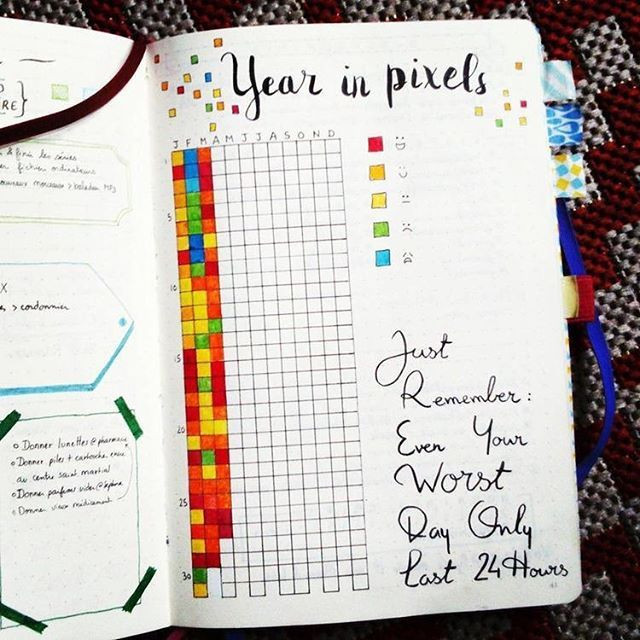 RE}
x & finir les séries
fichier ordinateurs
morceaux > baladeur MP3
X
> cordonnier
o Donner lunettes @ pharmacie
o Donner piles + cartouche encre
au centre saint martial
o Donner parfums vides @ sephora
o Donner vieux médicament
Year in pixels
J F M A M J J A S O N D
5
10
15
20
25
30
:D
:)
:|
:(
Just
Remember:
Even Your
Worst
Day Only
Last 24 Hours